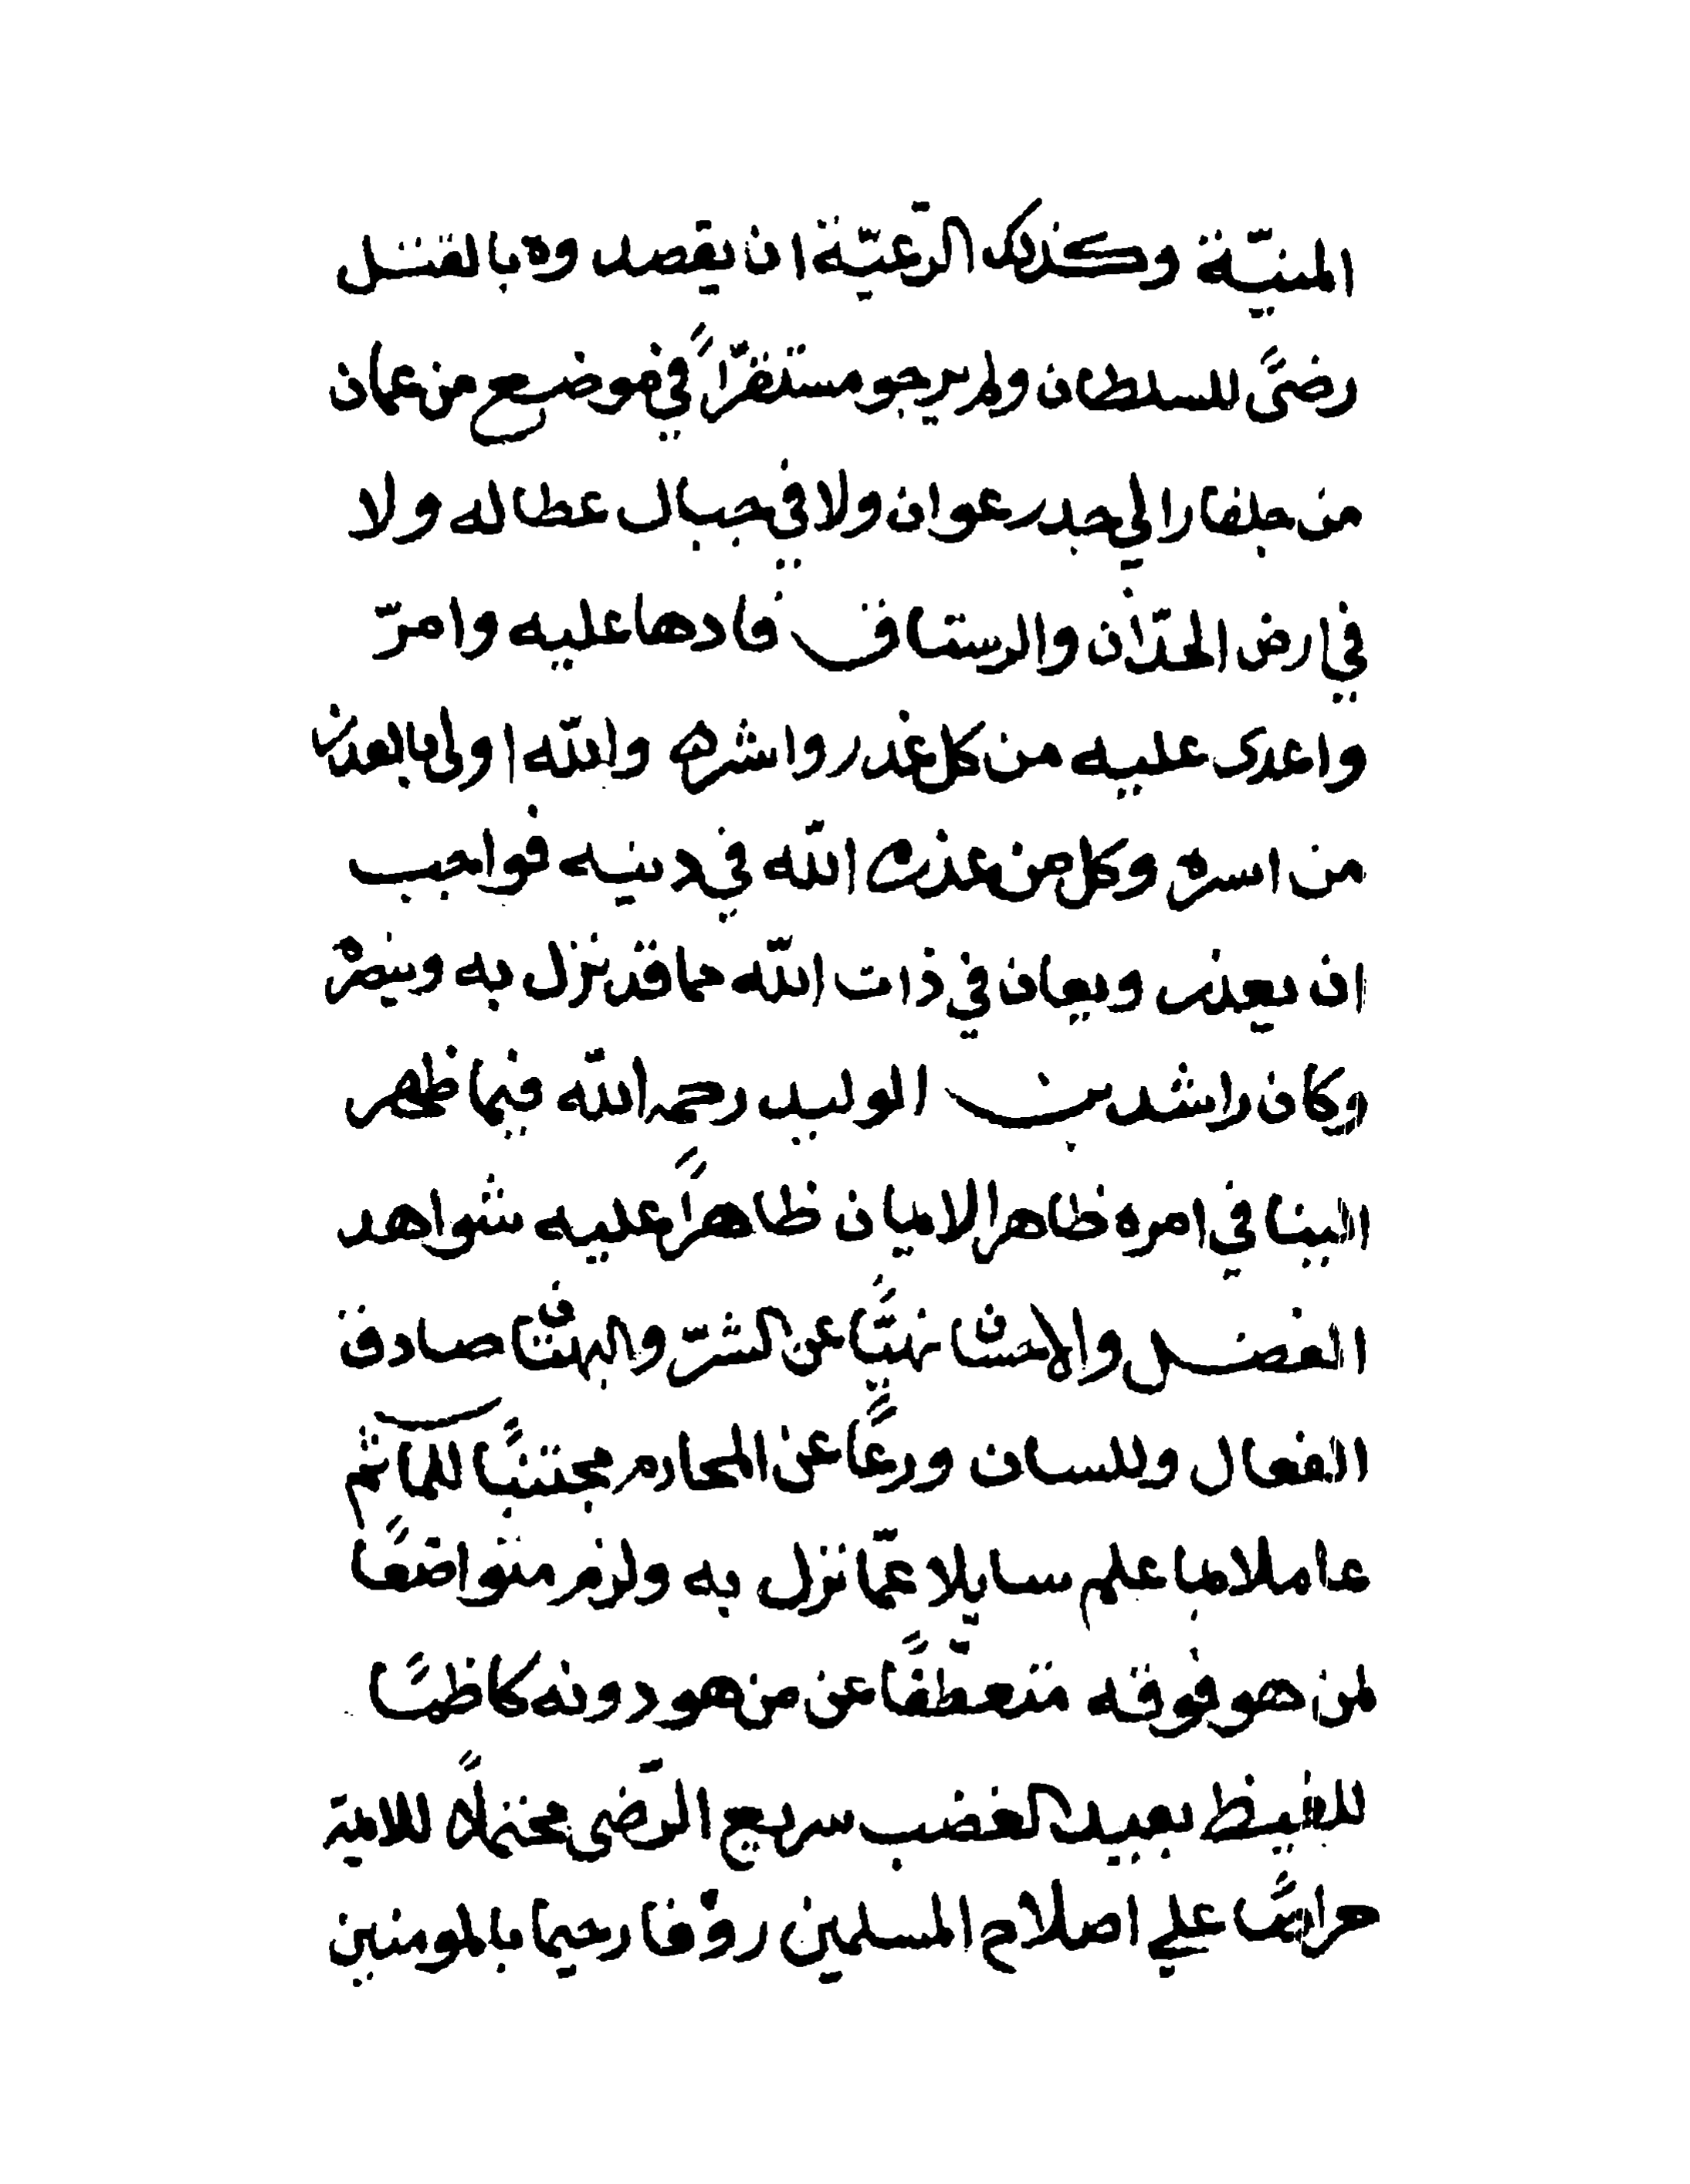 المنيّة وكذلك الرّعيّة ان يقصدوه بالقتل
رضىً للسلطان ولم يرجو مستقرّاً في موضع من عمان
من جلفار الي جدر عوان ولا في جبال عطاله ولا
في ارض الحدّان والرستاق فادها عليه وامرّ
واعدى عليه من كل غدر واشره ولله اولى بالعذر
من اسره وكل من عذره الله في دينه فواجب
ان يعذر ويعان في ذات الله مما قد نزل به وينصره
وكان راشد بن الوليد رحمه الله فيما ظهر
الينا في امره ظاهر الايمان ظاهراً عليه شواهد
الفضل والاحسان نهيّاً عن الشرّ والبهتان صادق
الفعال واللسان ورعًا عن المحارم مجتنبًا للماثم
عاملا بما علم سايلا عمّا نزل به ولزم متواضعًا
لمن هو فوقه متعطّفًا عن من هو دونه كاظمًا
للغيظ بعيد الغضب سريع الرّضى محتملاً للاذية
حراصًا علي اصلاح المسلمين روفا رحيما بالمومنين